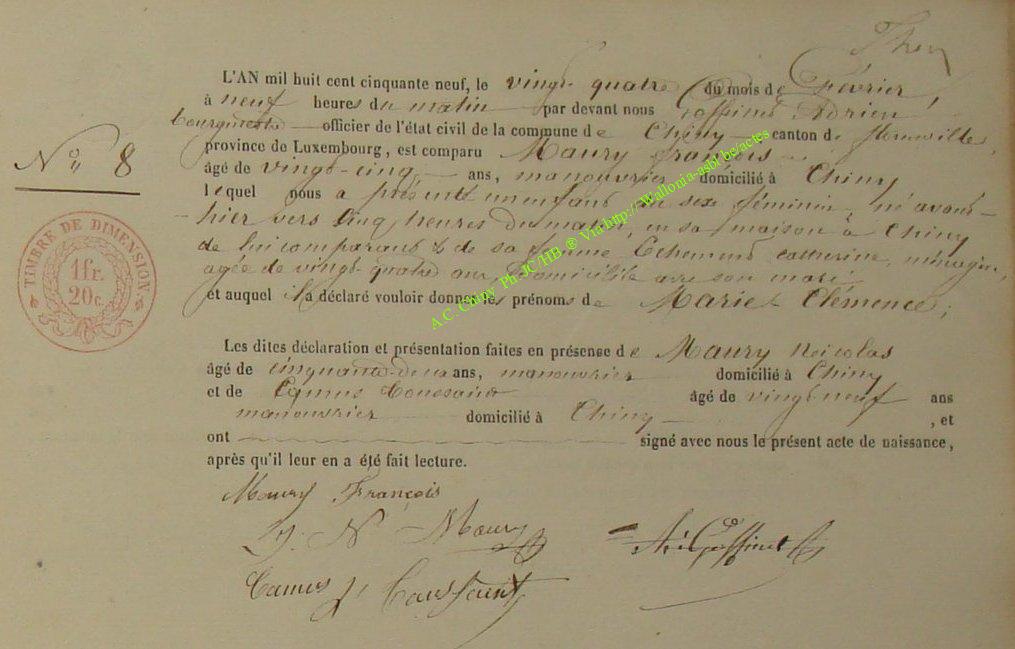 N° 8
TIMBRE DE DIMENSION
1 fr.
20 c.
L'AN mil huit cent cinquante neuf, le vingt quatre du mois de Février,
à neuf heures du matin par devant nous Goffinet Adrien
bourgmestre officier de l'état civil de la commune de Chiny canton de
province de Luxembourg, est comparu Maury François
âgé de vingt-cinq ans, manouvrier domicilié à Chiny
lequel nous a présenté un enfant du sexe féminin, né avant-
hier vers cinq heures du matin, en sa maison à Chiny
de lui comparant & de sa femme catherine, ménagère,
agée de vingt-quatre ans domiciliée avec son mari
et auquel il a déclaré vouloir donner les prénoms de Marie Clémence;
Les dites déclaration et présentation faites en présense de Maury Nicolas
âgé de cinquante-deux ans, manouvrier domicilié à Chiny
et de Camus Toussaint âgé de vingt-neuf ans
manouvrier domicilié à Chiny, et
ont signé avec nous le présent acte de naissance,
après qu'il leur en a été fait lecture.
Maury François
J. N Maury
Ad Goffinet
Camus J Toussaint
A.C. Chiny Ph JC/HB ® Via http://Wallonia-asbl.be/actes